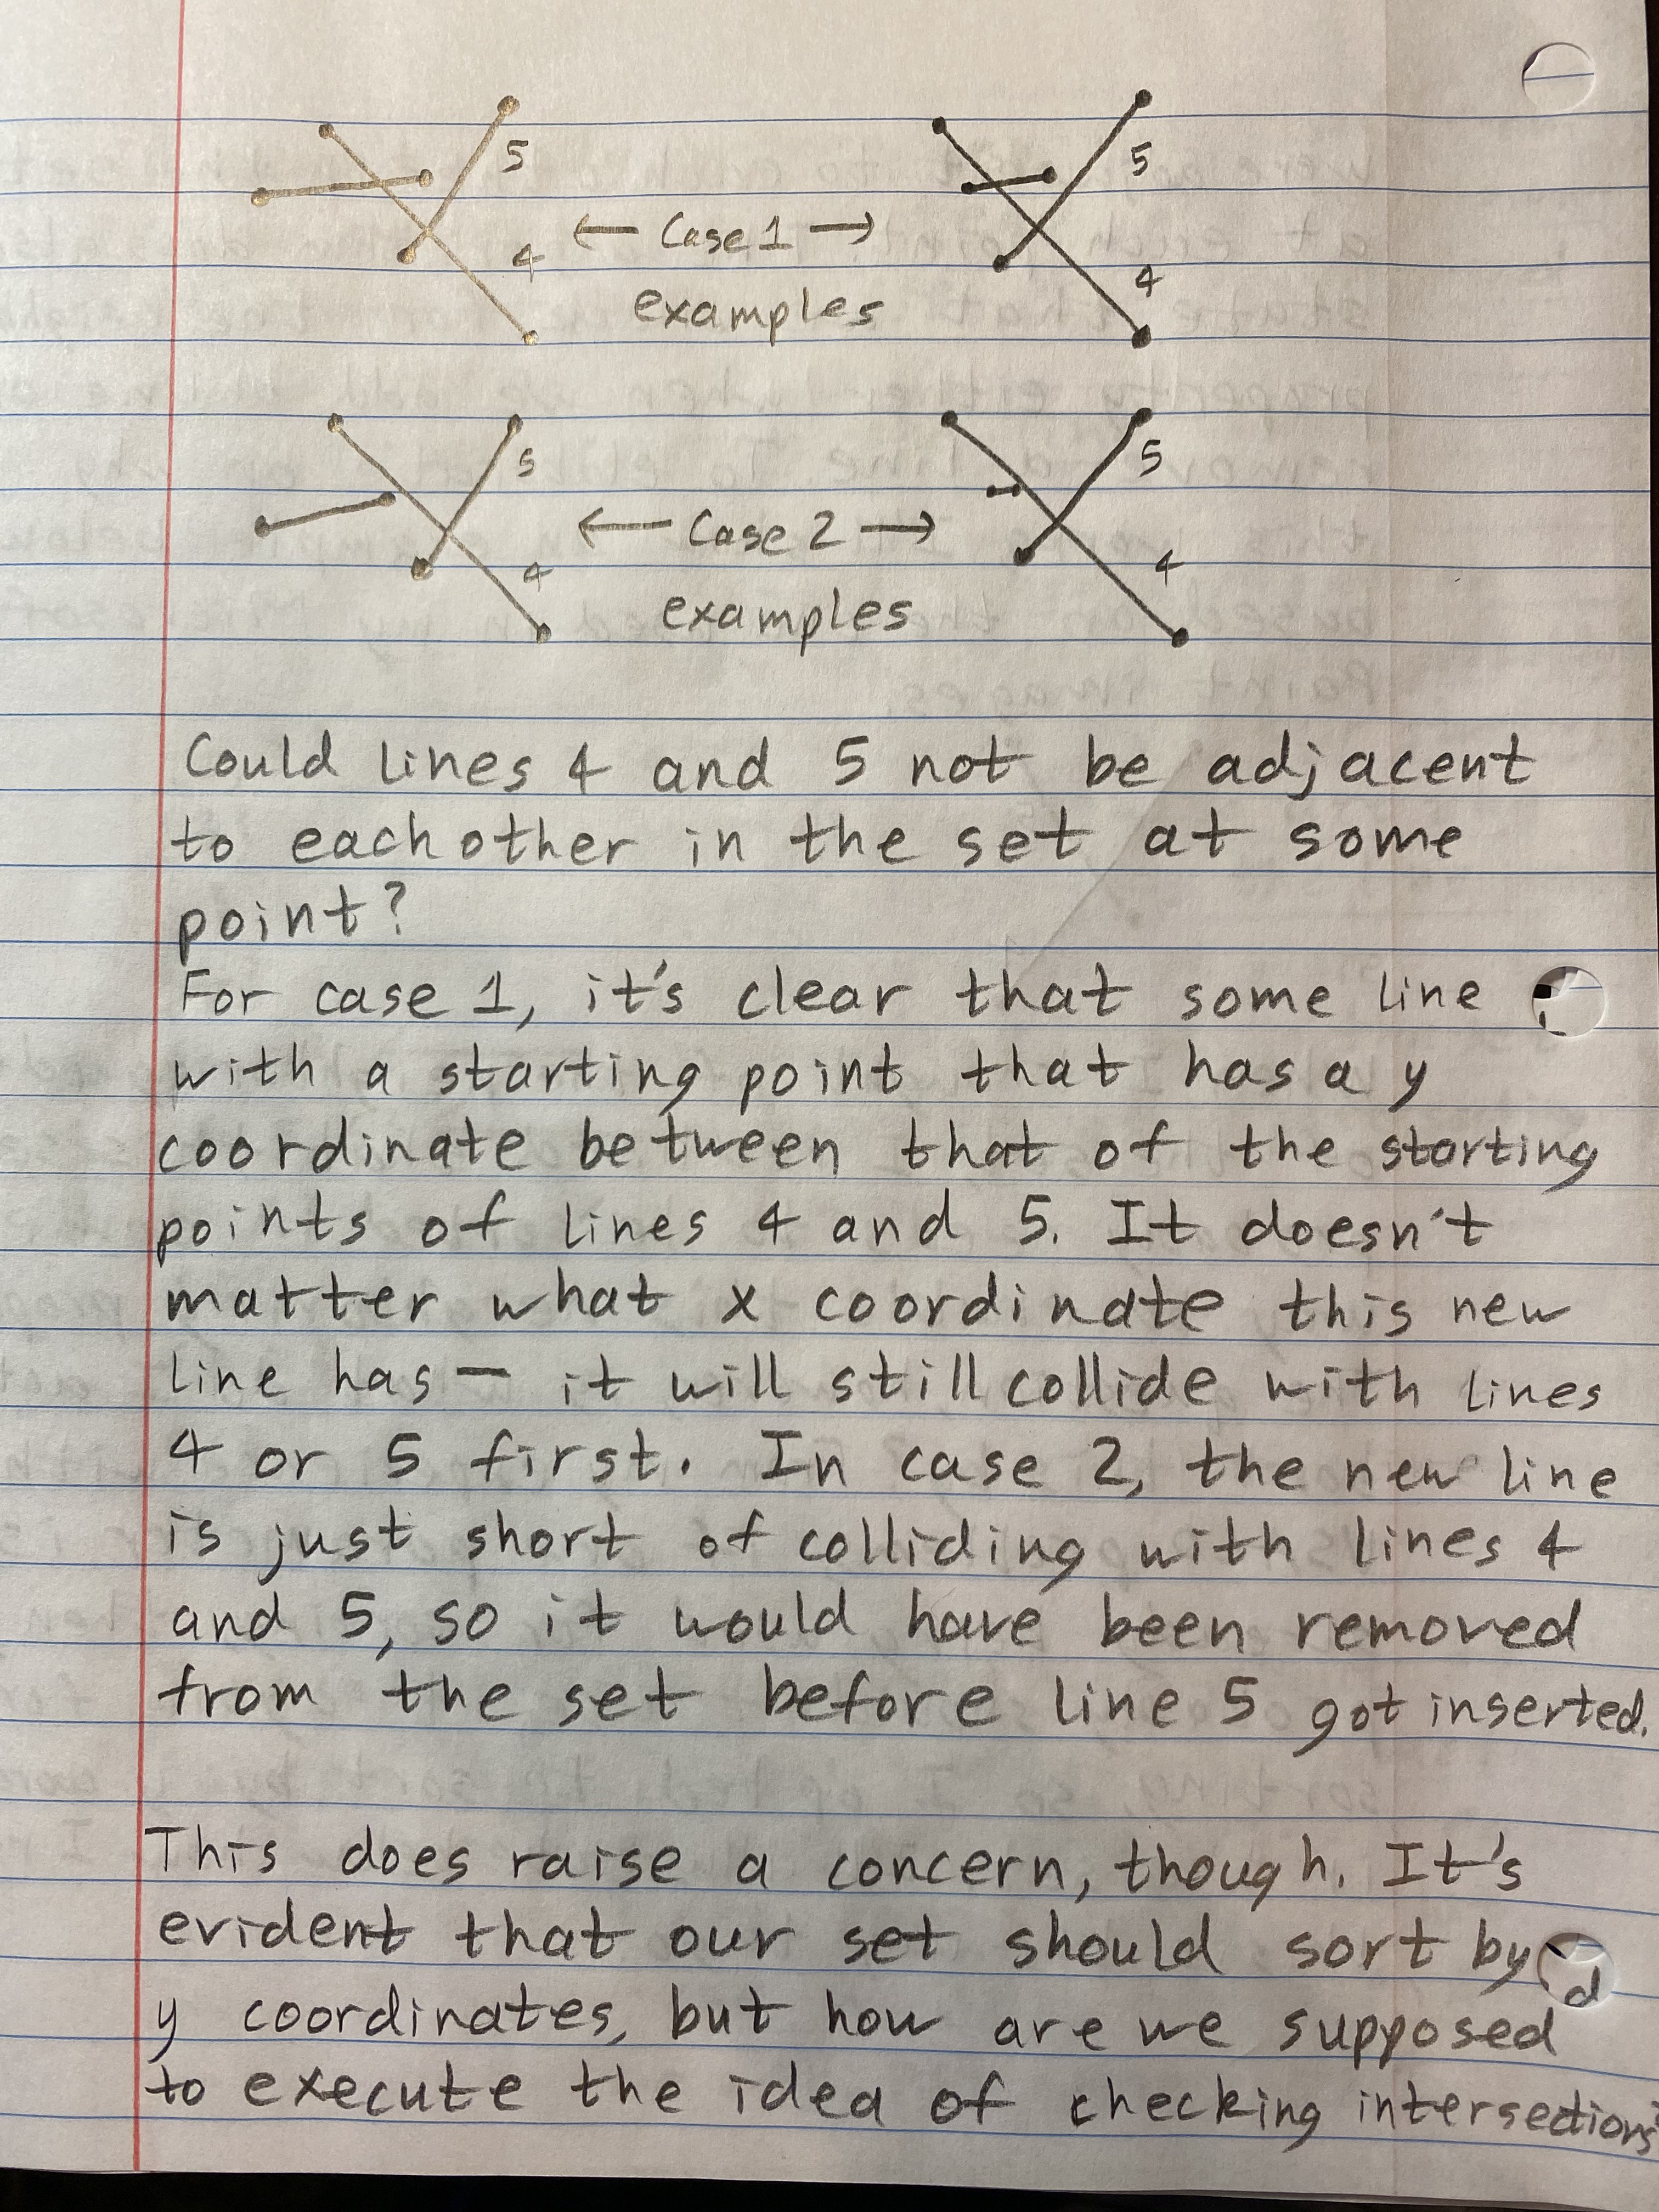 5 5
← Case 1 →
4 4
examples
5 5
← Case 2 →
4 4
examples
Could lines 4 and 5 not be adjacent
to each other in the set at some
point?
For case 1, it's clear that some line
with a starting point that has a y
coordinate between that of the starting
points of lines 4 and 5. It doesn't
matter what x coordinate this new
line has — it will still collide with lines
4 or 5 first. In case 2, the new line
is just short of colliding with lines 4
and 5, so it would have been removed
from the set before line 5 got inserted.
This does raise a concern, though. It's
evident that our set should sort by
y coordinates, but how are we supposed
to execute the idea of checking intersections